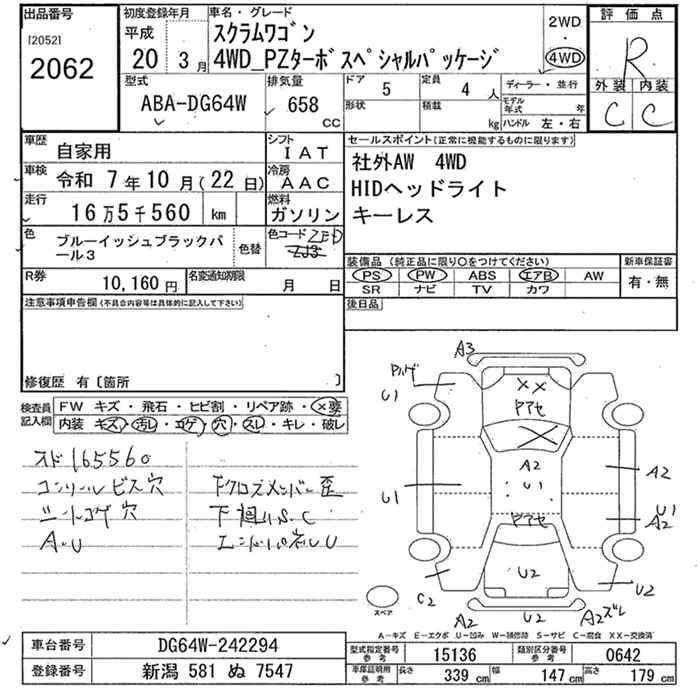 出品番号
[2052]
2062
初度登録年月
平成
20 3月
車名・グレード
スクラムワゴン
4WD_PZターボスペシャルパッケージ
2WD
・
4WD
評価点
R
外装 内装
C C
型式
ABA-DG64W
排気量
658 CC
ドア 5
形状
定員 4 人
積載 kg
ディーラー・並行
モデル年式 年
ハンドル 左・右
車歴 自家用
シフト IAT
車検 令和 7年10月(22日)
冷房 AAC
走行 16万5千560 km
燃料 ガソリン
色 ブルーイッシュブラックパール3
色替
色コード ZJ3 ZED
R券 10,160円
名変通知期限 月 日
注意事項申告欄(不具合内容等は具体的に記入して下さい)
修復歴 有〔箇所 〕
セールスポイント(正常に機能するものに限ります)
社外AW 4WD
HIDヘッドライト
キーレス
装備品(純正品に限り○をつけてください)
PS PW ABS エアB AW
SR ナビ TV カワ
新車保証書
有・無
後日品
検査員記入欄
FW キズ・飛石・ヒビ割・リペア跡・×要
内装 キズ・汚レ・コゲ・穴・スレ・キレ・破レ
メド165560
コンソールビス穴
シートコゲ穴
A・U
Fクロスメンバー歪
下廻りS.C
エンドパネルU
A3
U1
××
アセ
A2
U1
U1
A2
U1
A2
アセ
U2
C2
A2
U2
A2ズレ
U2
スペア
A-キズ E-エクボ U-凹み W-補修跡 S-サビ C-腐食 XX-交換済
車台番号 DG64W-242294
登録番号 新潟 581 ぬ 7547
型式指定番号 参考 15136
類別区分番号 参考 0642
車庫証明用 参考 長さ 339 cm 幅 147 cm 高さ 179 cm